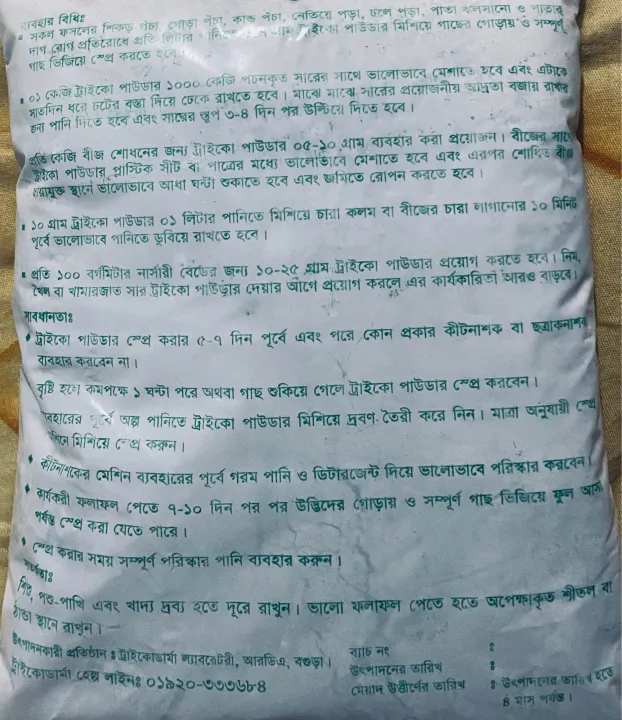 ব্যবহার বিধিঃ
▪ সকল ফসলের শিকড় পচা, গোড়া পচা, কান্ড পচা, নেতিয়ে পড়া, ঢলে পড়া, পাতা ঝলসানো ও পাতার
দাগ রোগ প্রতিরোধে প্রতি লিটার গ্রাম ট্রাইকো পাউডার মিশিয়ে গাছের গোড়ায় ও সম্পূর্ণ
গাছ ভিজিয়ে স্প্রে করতে হবে।
▪ ০১ কেজি ট্রাইকো পাউডার ১০০০ কেজি পচনকৃত সারের সাথে ভালোভাবে মেশাতে হবে এবং এটাকে
সাতদিন ধরে চটের বস্তা দিয়ে ঢেকে রাখতে হবে। মাঝে মাঝে সারের প্রয়োজনীয় আদ্রতা বজায় রাখার
জন্য পানি দিতে হবে এবং সারের স্তুপ ৩-৪ দিন পর উল্টিয়ে দিতে হবে।
প্রতি কেজি বীজ শোধনের জন্য ট্রাইকো পাউডার ০৫-১০ গ্রাম ব্যবহার করা প্রয়োজন। বীজের সাথে
ট্রাইকো পাউডার প্লাস্টিক সীট বা পাত্রের মধ্যে ভালোভাবে মেশাতে হবে এবং এরপর শোধিত বীজ
ছায়াযুক্ত স্থানে ভালোভাবে আধা ঘন্টা শুকাতে হবে এবং জমিতে রোপন করতে হবে।
▪ ১০ গ্রাম ট্রাইকো পাউডার ০১ লিটার পানিতে মিশিয়ে চারা কলম বা বীজের চারা লাগানোর ১০ মিনিট
পূর্বে ভালোভাবে পানিতে ডুবিয়ে রাখতে হবে।
▪ প্রতি ১০০ বর্গমিটার নার্সারী বেডের জন্য ১০-২৫ গ্রাম ট্রাইকো পাউডার প্রয়োগ করতে হবে। নিম,
খৈল বা খামারজাত সার ট্রাইকো পাউডার দেয়ার আগে প্রয়োগ করলে এর কার্যকারিতা আরও বাড়বে।
সাবধানতাঃ
♦ ট্রাইকো পাউডার স্প্রে করার ৫-৭ দিন পূর্বে এবং পরে কোন প্রকার কীটনাশক বা ছত্রাকনাশক
ব্যবহার করবেন না।
বৃষ্টি হলে কমপক্ষে ১ ঘন্টা পরে অথবা গাছ শুকিয়ে গেলে ট্রাইকো পাউডার স্প্রে করবেন।
ব্যবহারের পূর্বে অল্প পানিতে ট্রাইকো পাউডার মিশিয়ে দ্রবণ তৈরী করে নিন। মাত্রা অনুযায়ী স্প্রে
মেশিনে মিশিয়ে স্প্রে করুন।
♦ কীটনাশকের মেশিন ব্যবহারের পূর্বে গরম পানি ও ডিটারজেন্ট দিয়ে ভালোভাবে পরিষ্কার করবেন।
♦ কার্যকরী ফলাফল পেতে ৭-১০ দিন পর পর উদ্ভিদের গোড়ায় ও সম্পূর্ণ গাছ ভিজিয়ে ফুল আসা
পর্যন্ত স্প্রে করা যেতে পারে।
♦ স্প্রে করার সময় সম্পূর্ণ পরিষ্কার পানি ব্যবহার করুন।
সতর্কতাঃ
শিশু, পশু-পাখি এবং খাদ্য দ্রব্য হতে দূরে রাখুন। ভালো ফলাফল পেতে হতে অপেক্ষাকৃত শীতল বা
ঠান্ডা স্থানে রাখুন।
উৎপাদনকারী প্রতিষ্ঠান ঃ ট্রাইকোডার্মা ল্যাবরেটরী, আরডিএ, বগুড়া।
ট্রাইকোডার্মা হেল্প লাইনঃ ০১৯২০-৩৩৩৬৮৪
ব্যাচ নং ঃ
উৎপাদনের তারিখ ঃ
মেয়াদ উত্তীর্ণের তারিখ ঃ উৎপাদনের তারিখ হতে
৪ মাস পর্যন্ত।